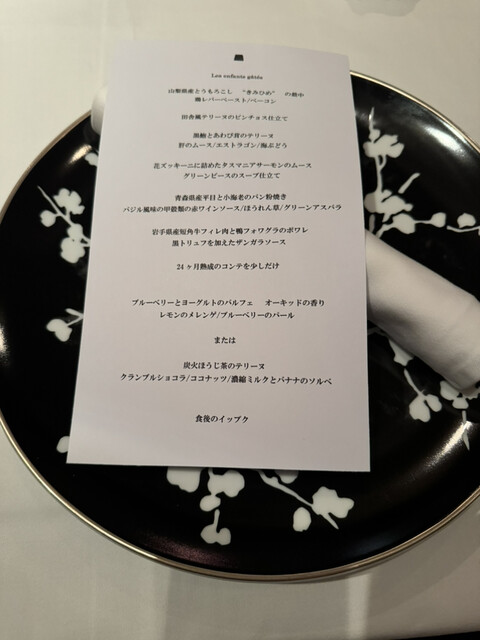 Les enfants gâtés
山梨県産とうもろこし “きみひめ” の最中
鶏レバーペースト/ベーコン
田舎風テリーヌのピンチョス仕立て
黒鮑とあわび茸のテリーヌ
肝のムース/エストラゴン/海ぶどう
花ズッキーニに詰めたタスマニアサーモンのムース
グリーンピースのスープ仕立て
青森県産平目と小海老のパン粉焼き
バジル風味の甲殻類の赤ワインソース/ほうれん草/グリーンアスパラ
岩手県産短角牛フィレ肉と鴨フォワグラのポワレ
黒トリュフを加えたザンガラソース
24ヶ月熟成のコンテを少しだけ
ブルーベリーとヨーグルトのパルフェ オーキッドの香り
レモンのメレンゲ/ブルーベリーのパール
または
炭火ほうじ茶のテリーヌ
クランブルショコラ/ココナッツ/濃縮ミルクとバナナのソルベ
食後のイップク